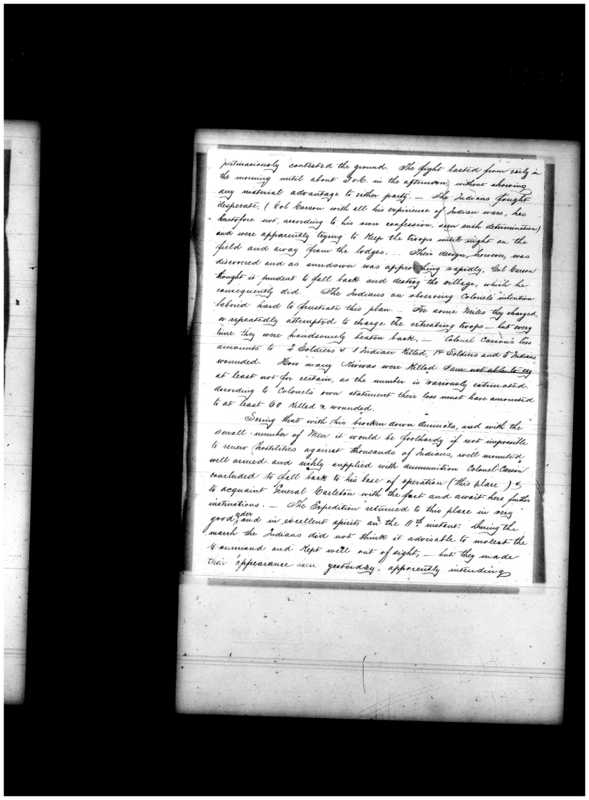 pertinaciously contested the ground. The fight lasted from early in
the morning until about 3 o.C. in the afternoon, without showing
any material advantage to either party. — The Indians fought
desperate, (Col Carson with all his experience of Indian wars, has
heretofore not, according to his own confession, seen such determination)
and were apparently trying to keep the troops until night on the
field and away from the lodges. .. Their design, however, was
discovered and as sundown was approaching rapidly, Col. Carson
thought is prudent to fall back and destroy the village, which he
consequently did. The Indians on observing Colonels intention
labored hard to frustrate this plan. For some Miles they charged,
or repeatedly attempted to charge the retreating troops — but every
time they were handsomely beaten back. — Colonel Carson's loss
amounts to 2 Soldiers & 1 Indian Killed, 14 Soldiers and 5 Indians
wounded. How many Kiowas were Killed I am not able to say
at least not for certain, as the number is variously estimated
According to Colonels own statement their loss must have amounted
to at least 60 Killed & wounded.
Seeing that with his broken down Animals, and with the
small number of Men it would be foolhardy if not impossible
to renew hostilities against thousands of Indians, well mounted
well armed and richly supplied with ammunition Colonel Carson
concluded to fall back to his base of operation (this place) &
to acquaint General Carleton with the fact and await here further
instructions. — The Expedition returned to this place in very
good order, and in excellent spirits on the 10th instant. During the
march the Indians did not think it advisable to molest the
Command and Kept well out of sight, — but they made
their appearance here yesterday, apparently intending